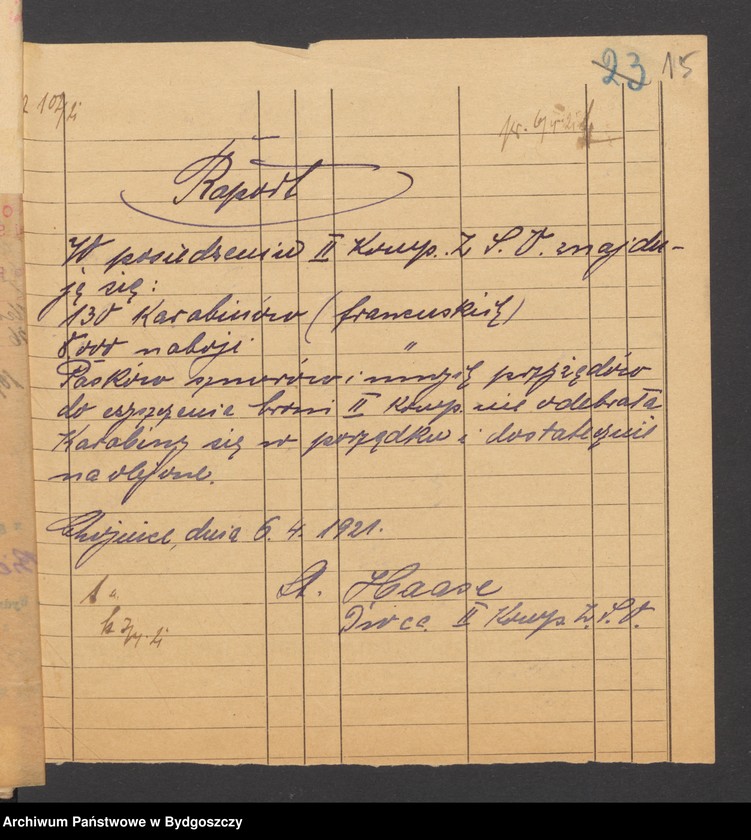 23 15
Raport
W posiedzeniu II Komp. Z. S. O. znajdu-
ją się:
130 Karabinów (francuskich)
8000 naboji "
Pasków sznurów i innych przyżądów
do czyszczenia broni II Komp. nie odebrała
Karabiny są w porządku i dostatecznie
naolejone.
Chojnice, dnia 6. 4. 1921.
St. Haase
Dwca. II Komp. Z. S. O.
Archiwum Państwowe w Bydgoszczy